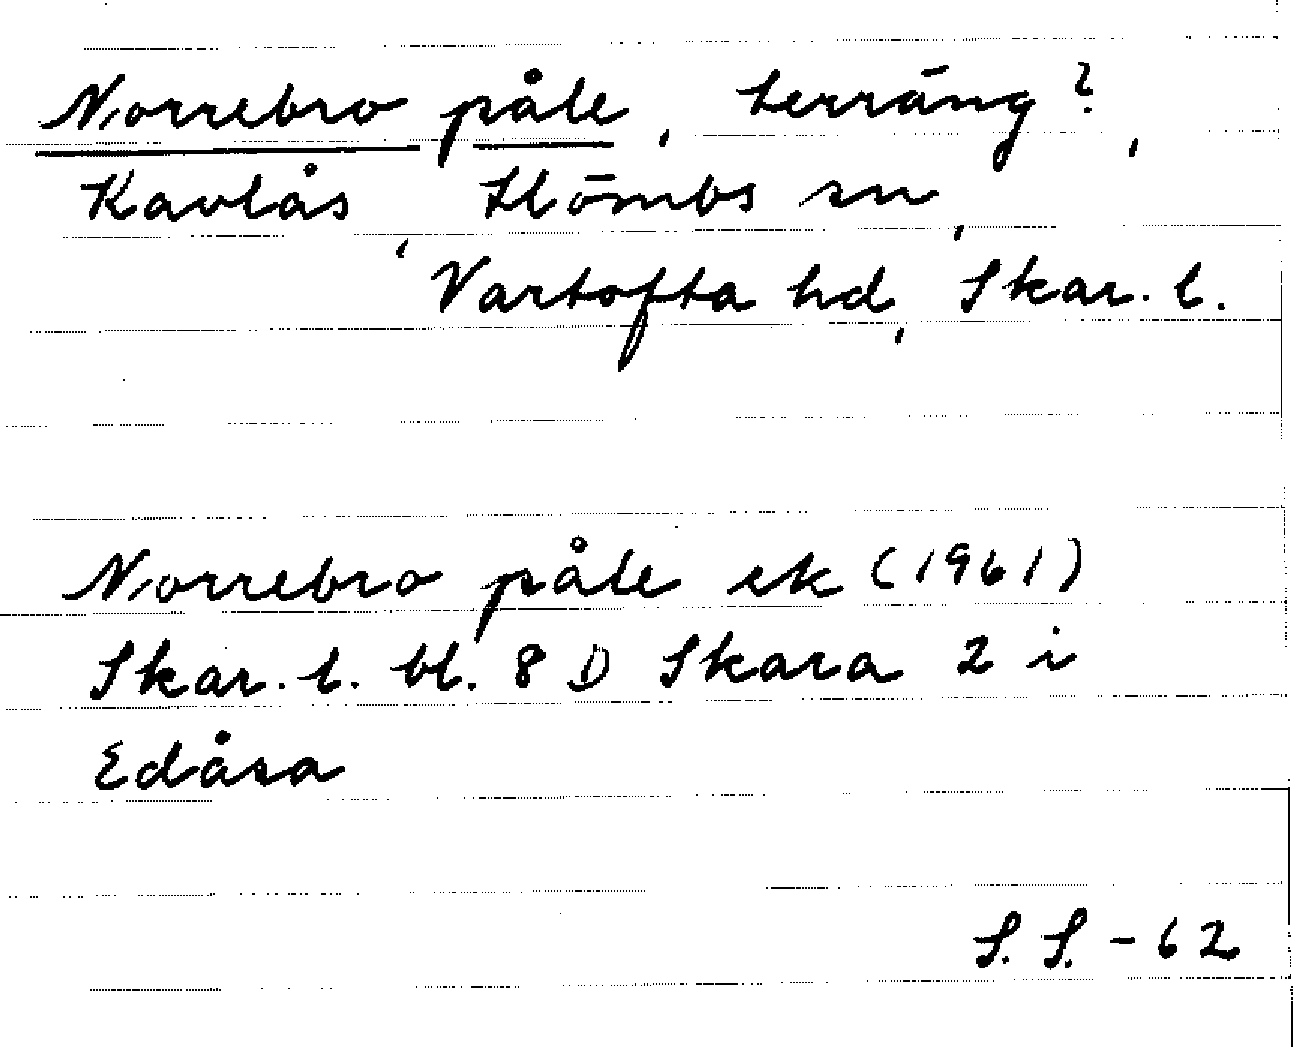 Norrebro påle, terräng?,
Kavlås, Hömbs sn,
Vartofta hd, Skar. l.
Norrebro påle ek (1961)
Skar. l. bl. 8 D Skara 2 i
Edåsa
S. S. - 62